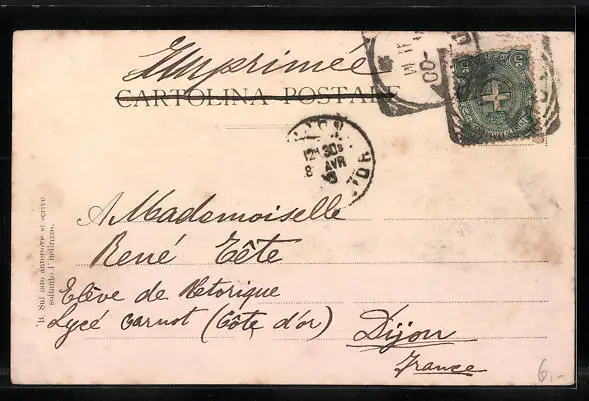 Imprimée
CARTOLINA POSTALE
5 5
12 30S
8 AVR
A Mademoiselle
René Tête
Elève de Retorique
Lycé Carnot (Côte d'or) Dijon
France
N.B. Sul lato anteriore si scrive
soltanto l'indirizzo.
6.-